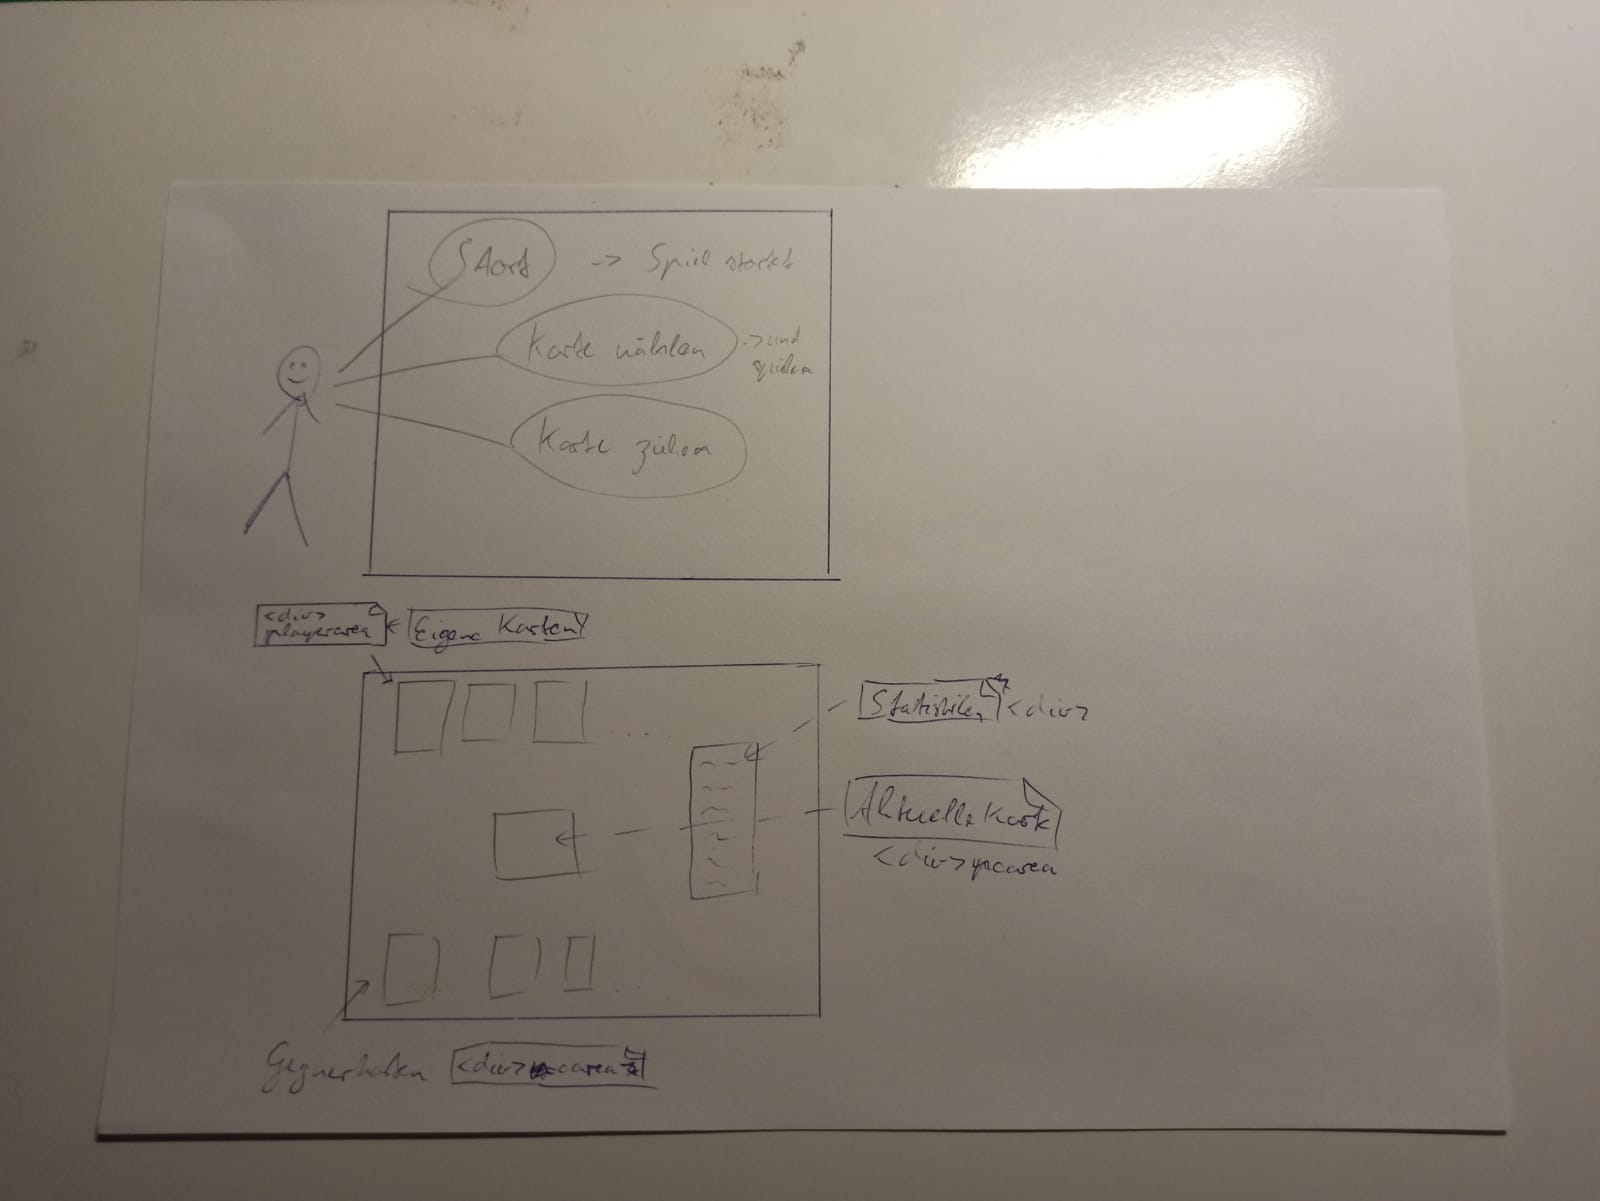 Start -> Spiel startet
Karte wählen -> und
spielen
Karte ziehen
<div>
playerarea
Eigene Karten
Statistiken <div>
Aktuelle Karte
<div>
Gegnerkarten <div> area